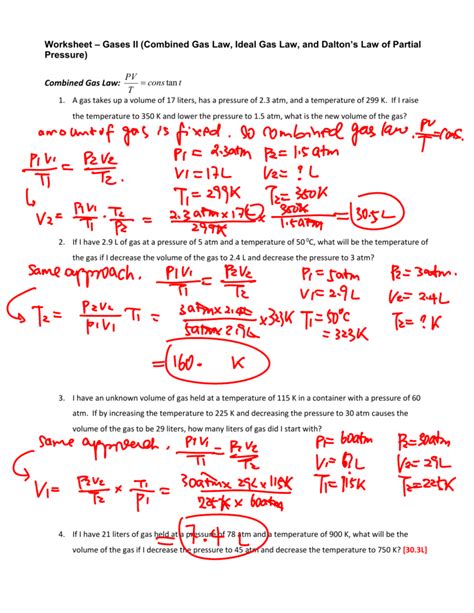 Worksheet – Gases II (Combined Gas Law, Ideal Gas Law, and Dalton's Law of Partial
Pressure)
Combined Gas Law: PV/T = constant
1. A gas takes up a volume of 17 liters, has a pressure of 2.3 atm, and a temperature of 299 K. If I raise
the temperature to 350 K and lower the pressure to 1.5 atm, what is the new volume of the gas?
amount of gas is fixed. so combined gas law. PV/T = cons.
P1V1/T1 = P2V2/T2. P1 = 2.3atm P2 = 1.5atm
V1 = 17L V2 = ? L
T1 = 299K T2 = 350K
V2 = P1V1/T1 · T2/P2 = 2.3atm × 17L/299K × 350K/1.5atm = 30.5L
2. If I have 2.9 L of gas at a pressure of 5 atm and a temperature of 50 ⁰C, what will be the temperature of
the gas if I decrease the volume of the gas to 2.4 L and decrease the pressure to 3 atm?
Same approach. P1V1/T1 = P2V2/T2 P1 = 5atm P2 = 3atm.
V1 = 2.9L V2 = 2.4L
T2 = P2V2/P1V1 T1 = 3atm × 2.4L/5atm × 2.9L × 323K T1 = 50°C T2 = ? K
= 323K
= 160. K
3. I have an unknown volume of gas held at a temperature of 115 K in a container with a pressure of 60
atm. If by increasing the temperature to 225 K and decreasing the pressure to 30 atm causes the
volume of the gas to be 29 liters, how many liters of gas did I start with?
Same approach. P1V1/T1 = P2V2/T2 P1 = 60atm P2 = 30atm
V1 = ? L V2 = 29L
V1 = P2V2/T2 × T1/P1 = 30atm × 29L × 115K/225K × 60atm T1 = 115K T2 = 225K
= 7.4L
4. If I have 21 liters of gas held at a pressure of 78 atm and a temperature of 900 K, what will be the
volume of the gas if I decrease the pressure to 45 atm and decrease the temperature to 750 K? [30.3L]